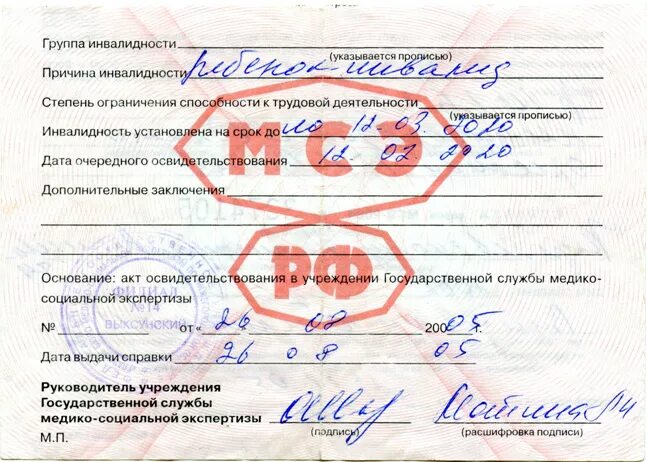 Группа инвалидности
(указывается прописью)
Причина инвалидности ребенок-инвалид
Степень ограничения способности к трудовой деятельности
(указывается прописью)
Инвалидность установлена на срок до до 12.03.2020
Дата очередного освидетельствования 12.02.2020
Дополнительные заключения
МСЭ
РФ
Основание: акт освидетельствования в учреждении Государственной службы медико-
социальной экспертизы
ФИЛИАЛ
№14
ВЫКСУНСКИЙ
№ от « 26 08 2005 г.
Дата выдачи справки 26 08 05
Руководитель учреждения
Государственной службы
медико-социальной экспертизы
(подпись) (расшифровка подписи)
М.П.